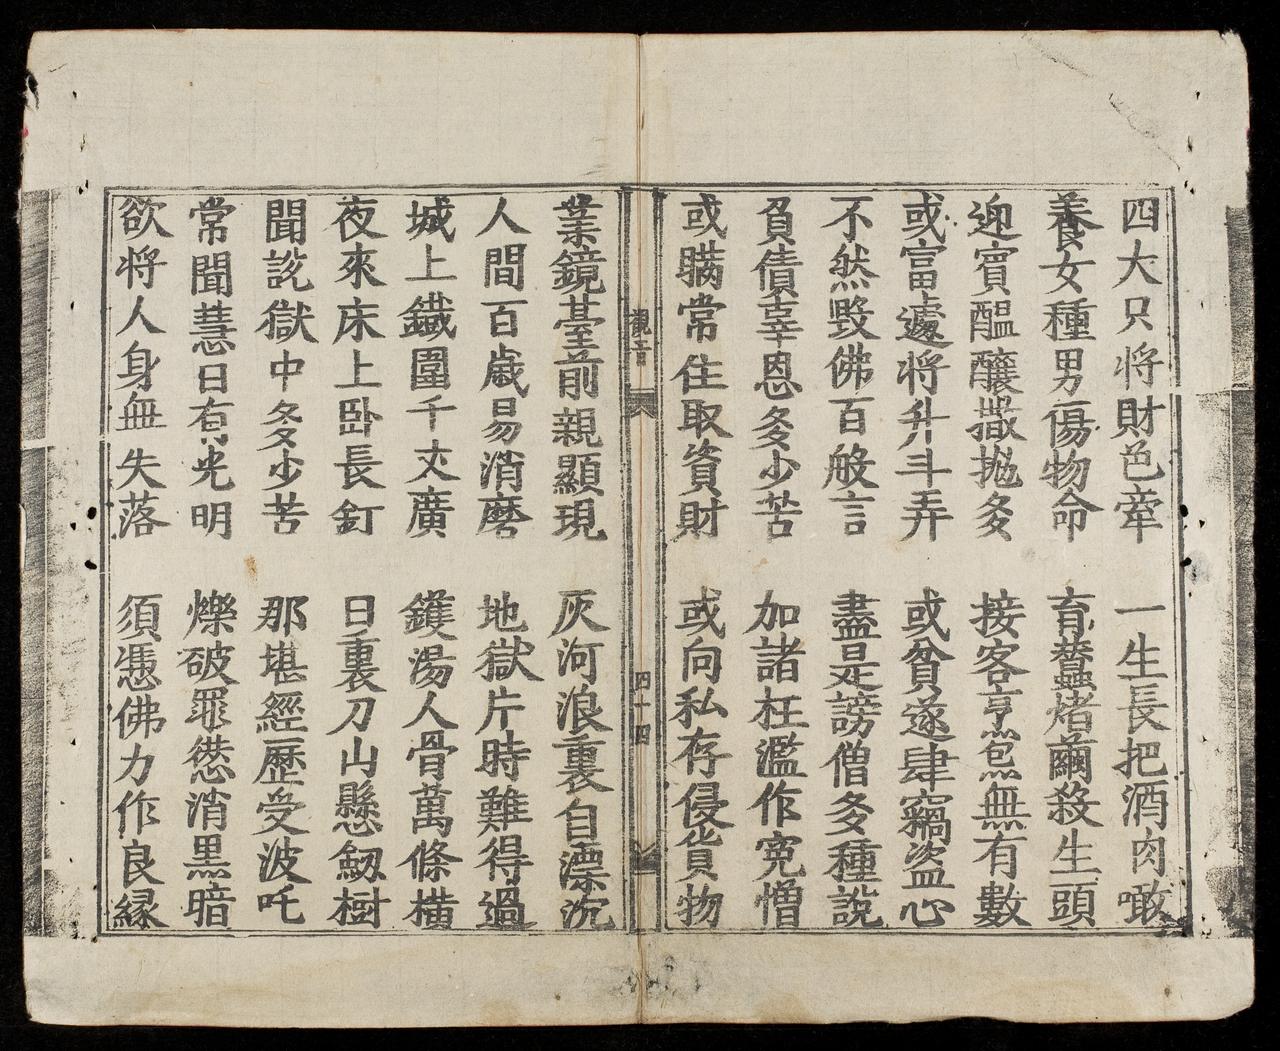 四大只将財色牽　一生長把酒肉噉
養女種男傷物命　育蠶煑繭殺生頭
迎賓醞釀撒抛多　接客亨炰無有數
或富遽将升斗弄　或貧遂肆竊盗心
不然毀佛百般言　盡是謗僧多種說
負債辜恩多少苦　加諸枉濫作寃憎
或瞞常住取資財　或向私存侵貨物
觀音　四十四
業鏡臺前親顯現　灰河浪裏自漂沉
人間百歲易消磨　地獄片時難得過
城上鐵圍千丈廣　鑊湯人骨萬條橫
夜來床上卧長釘　日裏刀山懸劒樹
聞說獄中多少苦　那堪經歷受波吒
常聞慧日有光明　爍破罪愆消黒暗
欲将人身無失落　須憑佛力作良縁